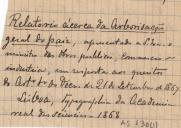 Relatorio ácerca da Arborisação
geral do paiz, apresentado a S. Exa. o
ministro das Obras publicas, Commercio e
industria, em resposta aos quesitos
do Artº 1º do Decr. de 21 de Setembro de 1867.
Lisboa, Typographia da Academia
real das Sciencias - 1868
AS 130(1)